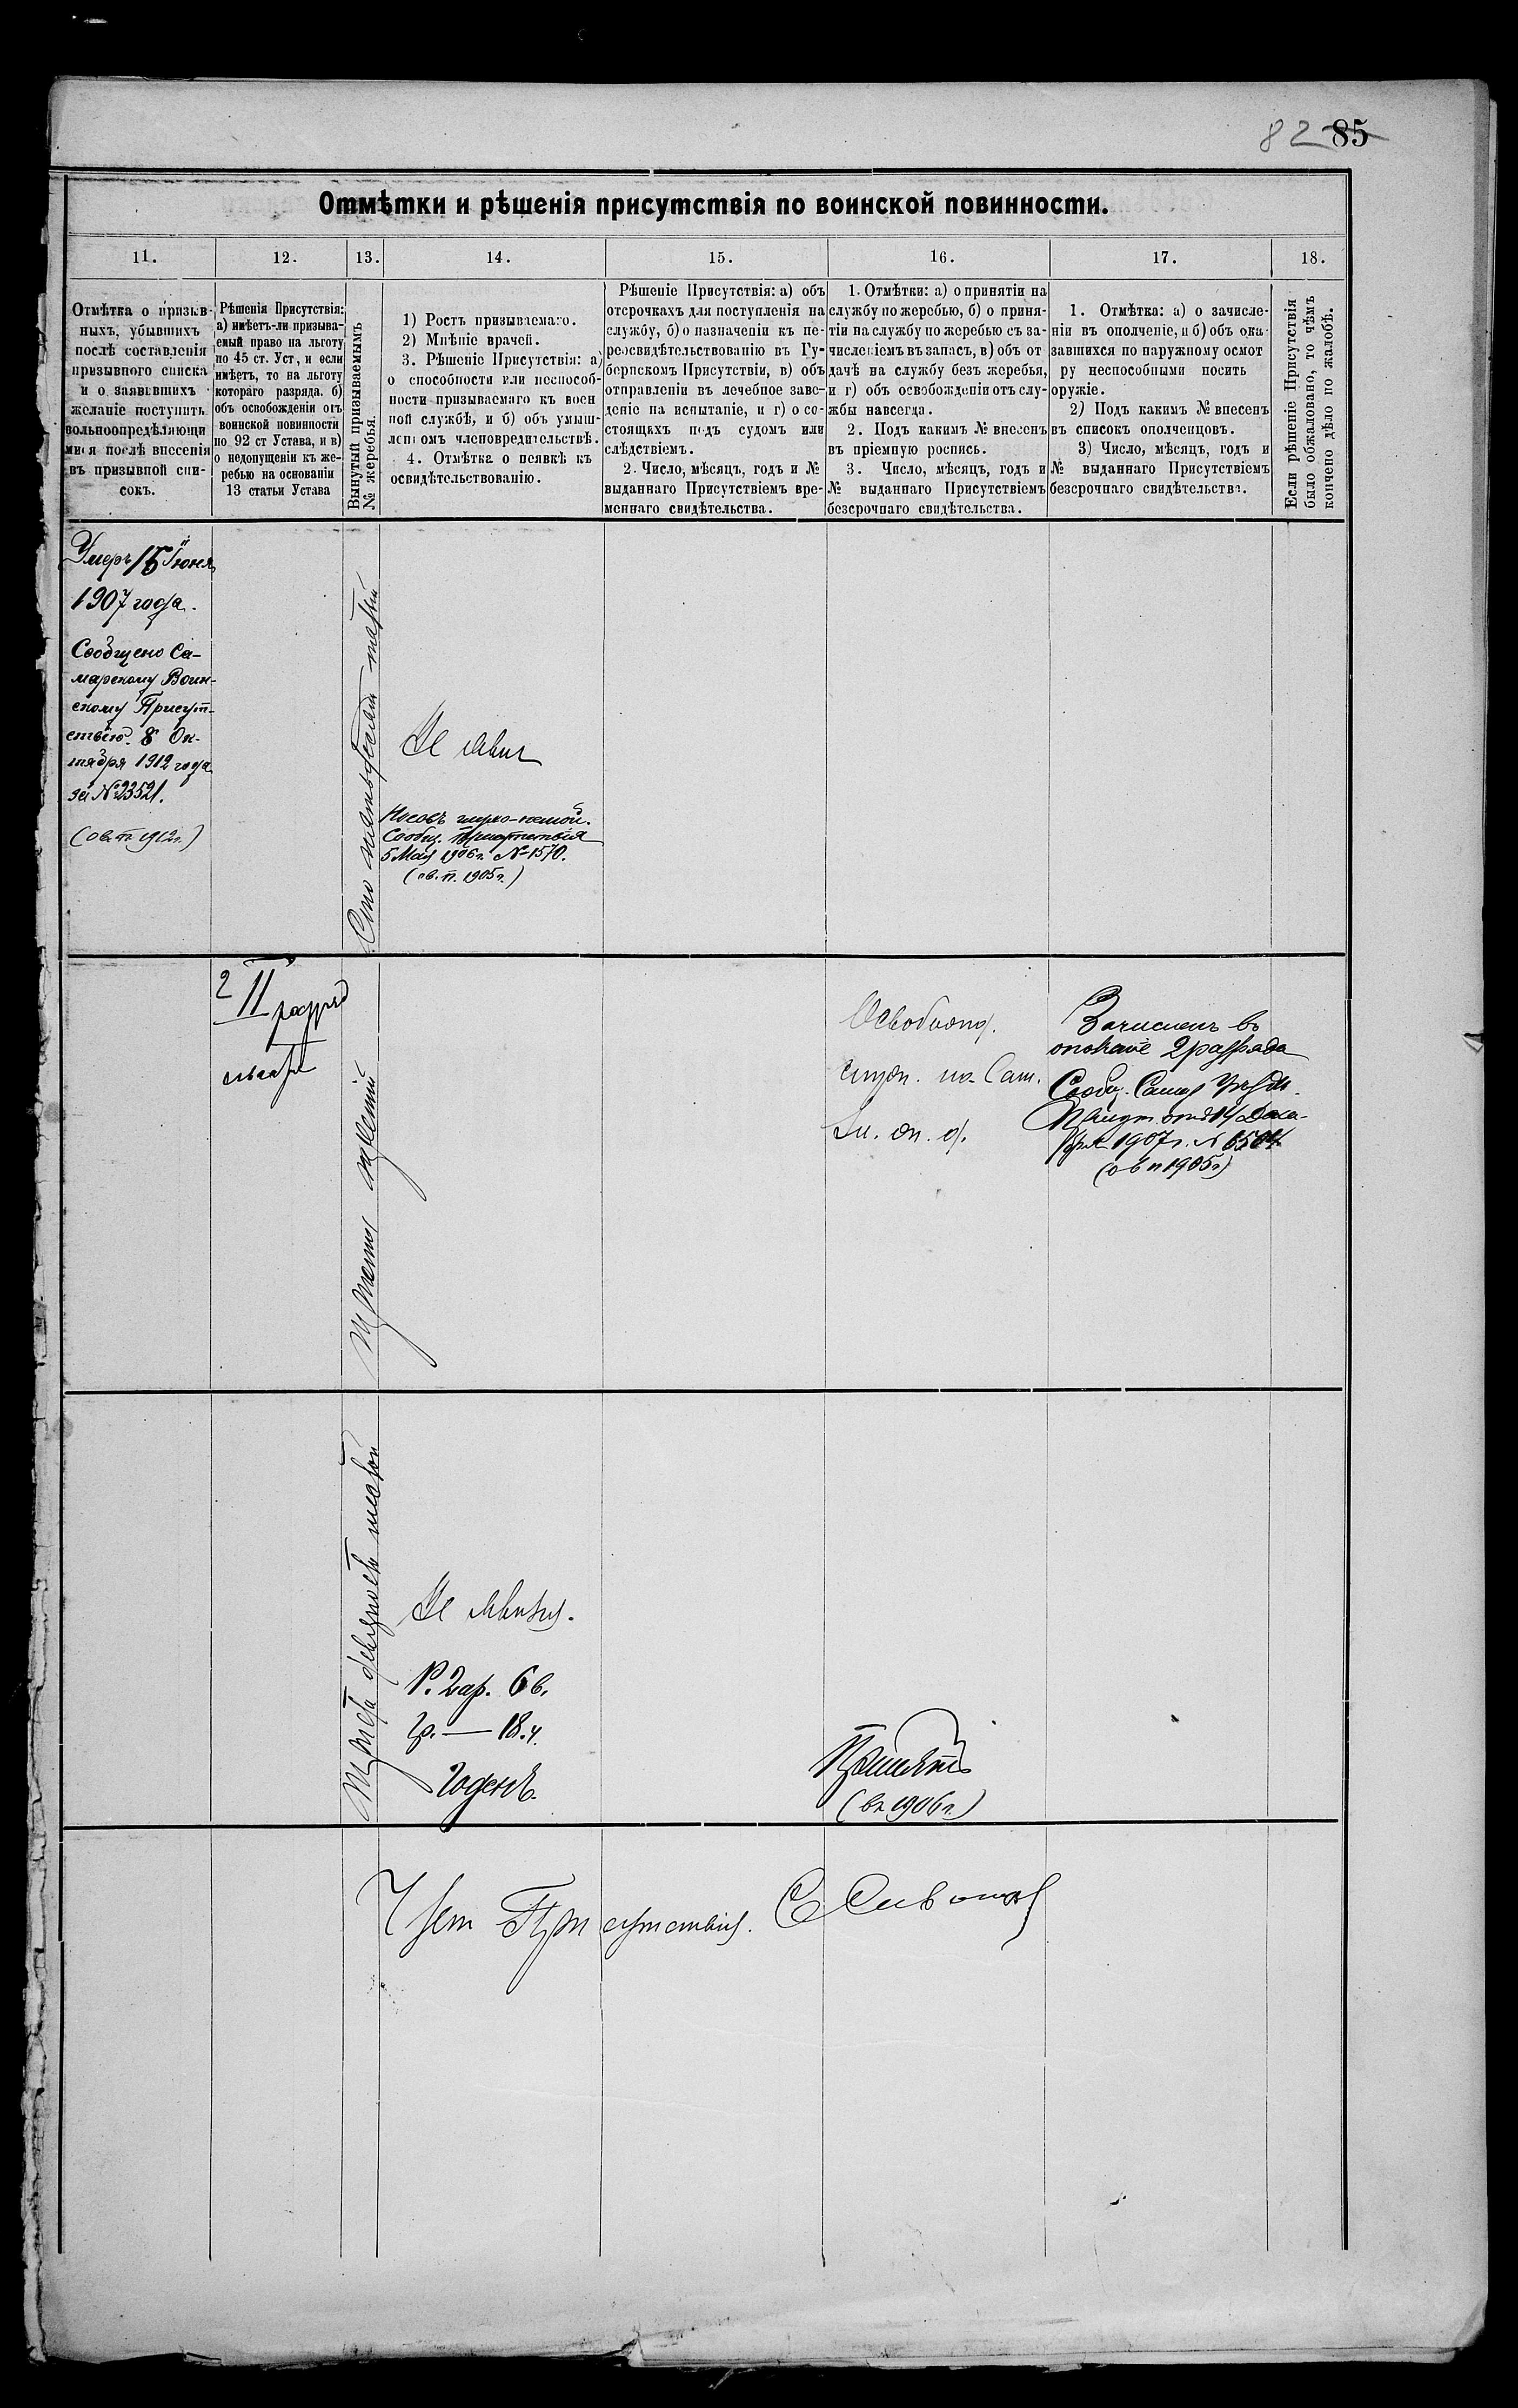 82 85
Отмѣтки и рѣшенія присутствія по воинской повинности.
11.
12.
13.
14.
15.
16.
17.
18.
Отмѣтка о призыв-
ныхъ, убывшихъ
послѣ составленія
призывного списка
и о заявившихъ
желаніе поступить
вольноопредѣляющи
мися послѣ внесенія
въ призывной спи-
сокъ.
Рѣшенія Присутствія:
а) имѣетъ-ли призыва-
емый право на льготу
по 45 ст. Уст, и если
имѣетъ, то на льготу
котораго разряда. б)
объ освобожденіи отъ
воинской повинности
по 92 ст Устава, и в)
о недопущеніи къ же-
ребью на основаніи
13 статьи Устава
Вынутый призываемымъ
№ жеребья.
1) Ростъ призываемаго.
2) Мнѣніе врачей.
3. Рѣшеніе Присутствія: а)
о способности или неспособ-
ности призываемаго къ воен
ной службѣ, и б) объ умыш-
леномъ членовредительствѣ.
4. Отмѣтка о неявкѣ къ
освидѣтельствованію.
Рѣшеніе Присутствія: а) объ
отсрочкахъ для поступленія на
службу, б) о назначеніи къ пе-
реосвидѣтельствованію въ Гу-
бернскомъ Присутствіи, в) объ
отправленіи въ лечебное заве-
деніе на испытаніе, и г) о со-
стоящихъ подъ судомъ или
слѣдствіемъ.
2. Число, мѣсяцъ, годъ и №
выданнаго Присутствіемъ вре-
меннаго свидѣтельства.
1. Отмѣтки: а) о принятіи на
службу по жеребью, б) о приня-
тіи на службу по жеребью съ за-
численіемъ въ запасъ, в) объ от
дачѣ на службу безъ жеребья,
и г) объ освобожденіи отъ слу-
жбы навсегда.
2. Подъ какимъ № внесенъ
въ пріемную роспись.
3. Число, мѣсяцъ, годъ и
№ выданнаго Присутствіемъ
безсрочнаго свидѣтельства.
1. Отмѣтка: а) о зачисле-
ніи въ ополченіе, и б) объ ока
завшихся по наружному осмот
ру неспособными носить
оружіе.
2) Подъ какимъ № внесенъ
въ списокъ ополченцовъ.
3) Число, мѣсяцъ, годъ и
№ выданнаго Присутствіемъ
безсрочнаго свидѣтельства.
Если рѣшеніе Присутствія
было обжаловано, то чѣмъ
кончено дѣло по жалобѣ.
Умеръ 15 Іюня
1907 года.
Сообщено Са-
марскому Воин-
скому Присут-
ствію 8 Ок-
тября 1912 года
за № 23521.
Сто пятьдесят
Не явил
Сообщ. Присутствія
5 Мая 1906 г. № 1570.
(ов. п. 1905 г.)
2 II разряд
Триста
Освобожд.
Зачислен въ
2 разряда
Сообщ.
1907 г. №
(ов п 1905 г)
Триста девяносто шестой
Не явился.
Р. 2 ар. 6 в.
гр. — 18. ч.
Годенъ.
Принятъ
(въ 1906 г.)
Член Присутствія.